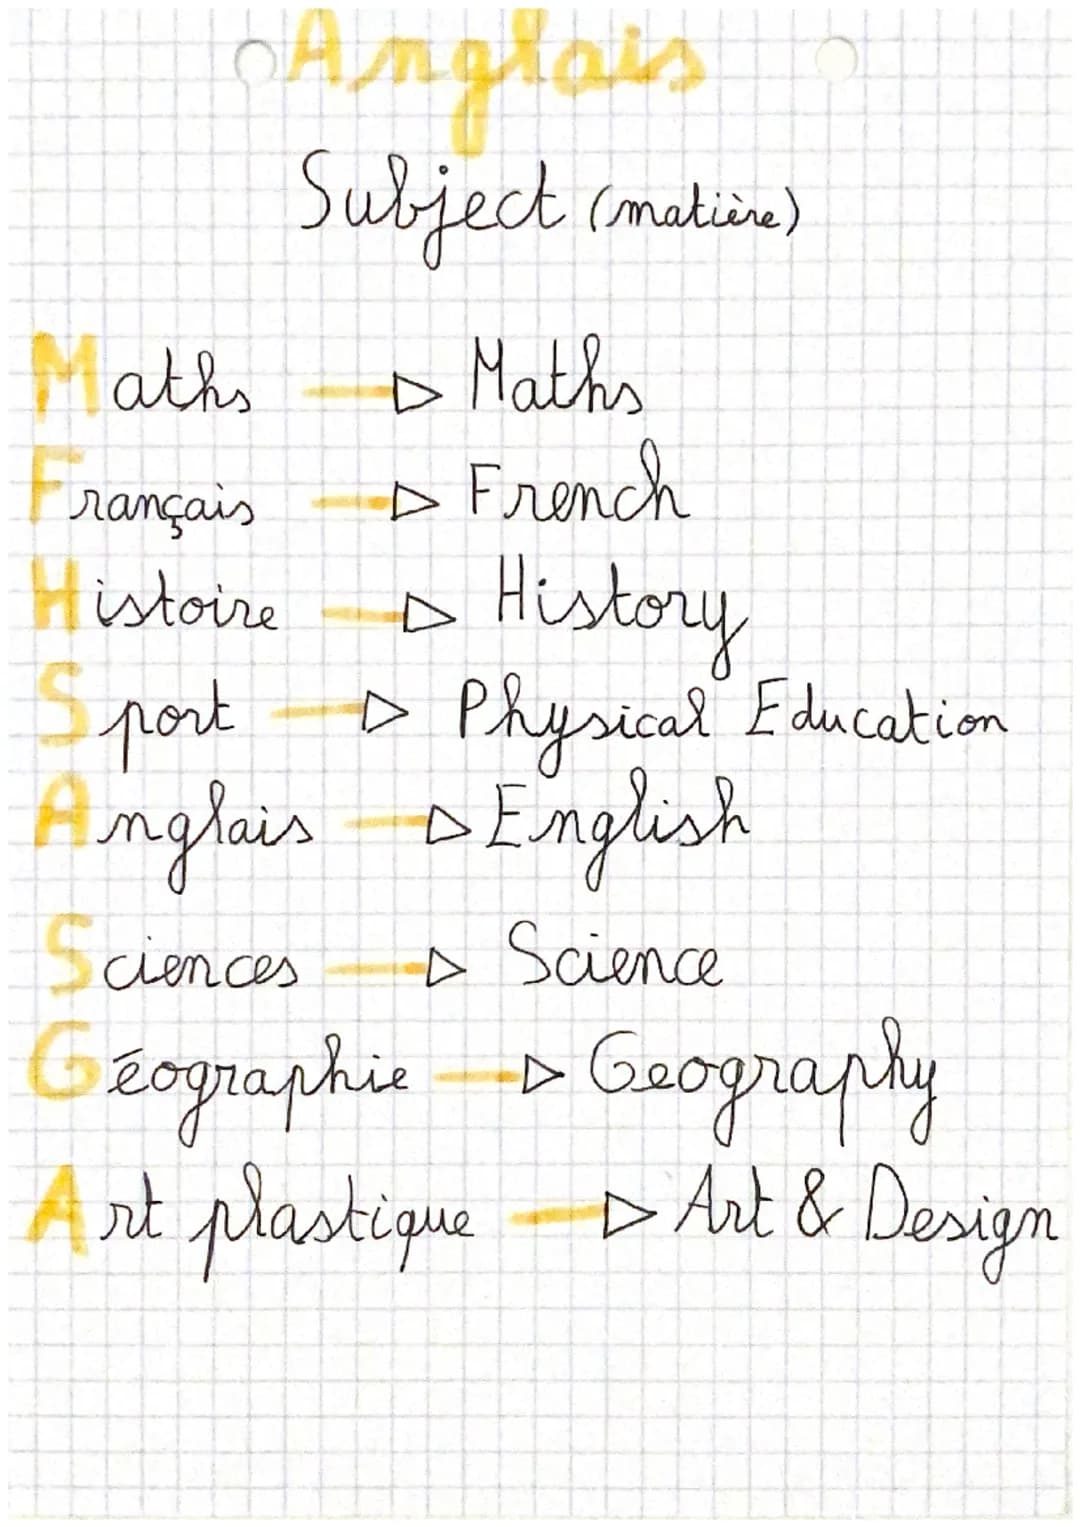 Anglais
Subject (matière)
Maths → Maths
Français → French
Histoire → History
Sport → Physical Education
Anglais → English
Sciences → Science
Géographie → Geography
Art plastique → Art & Design